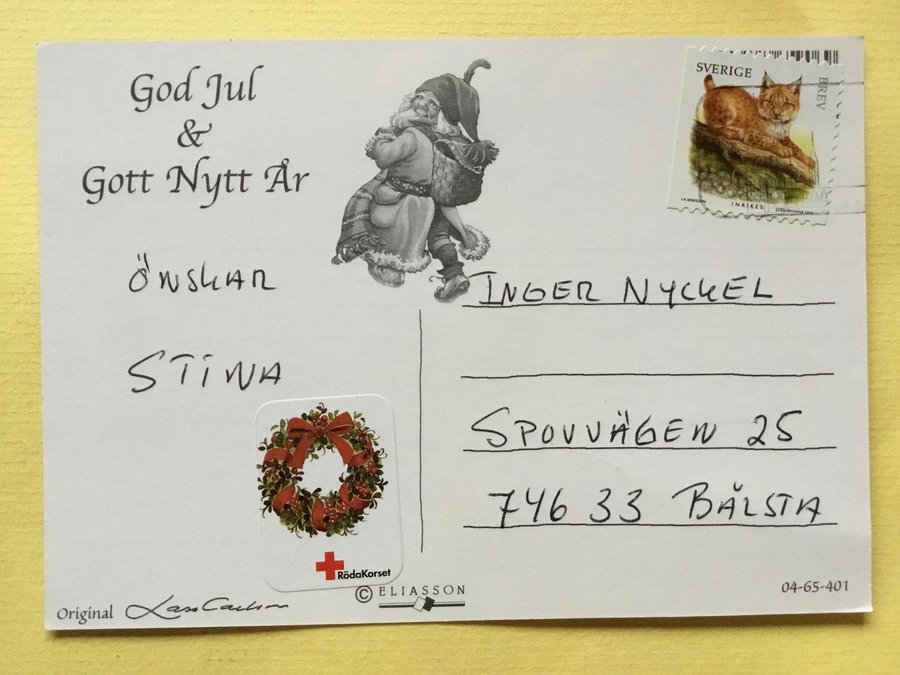 God Jul
&
Gott Nytt År
ÖNSKAR
STINA
SVERIGE
BREV
INRIKES
INGER NYCKEL
SPOVVÄGEN 25
746 33 BÅLSTA
RödaKorset
© ELIASSON
04-65-401
Original Lars Carlson